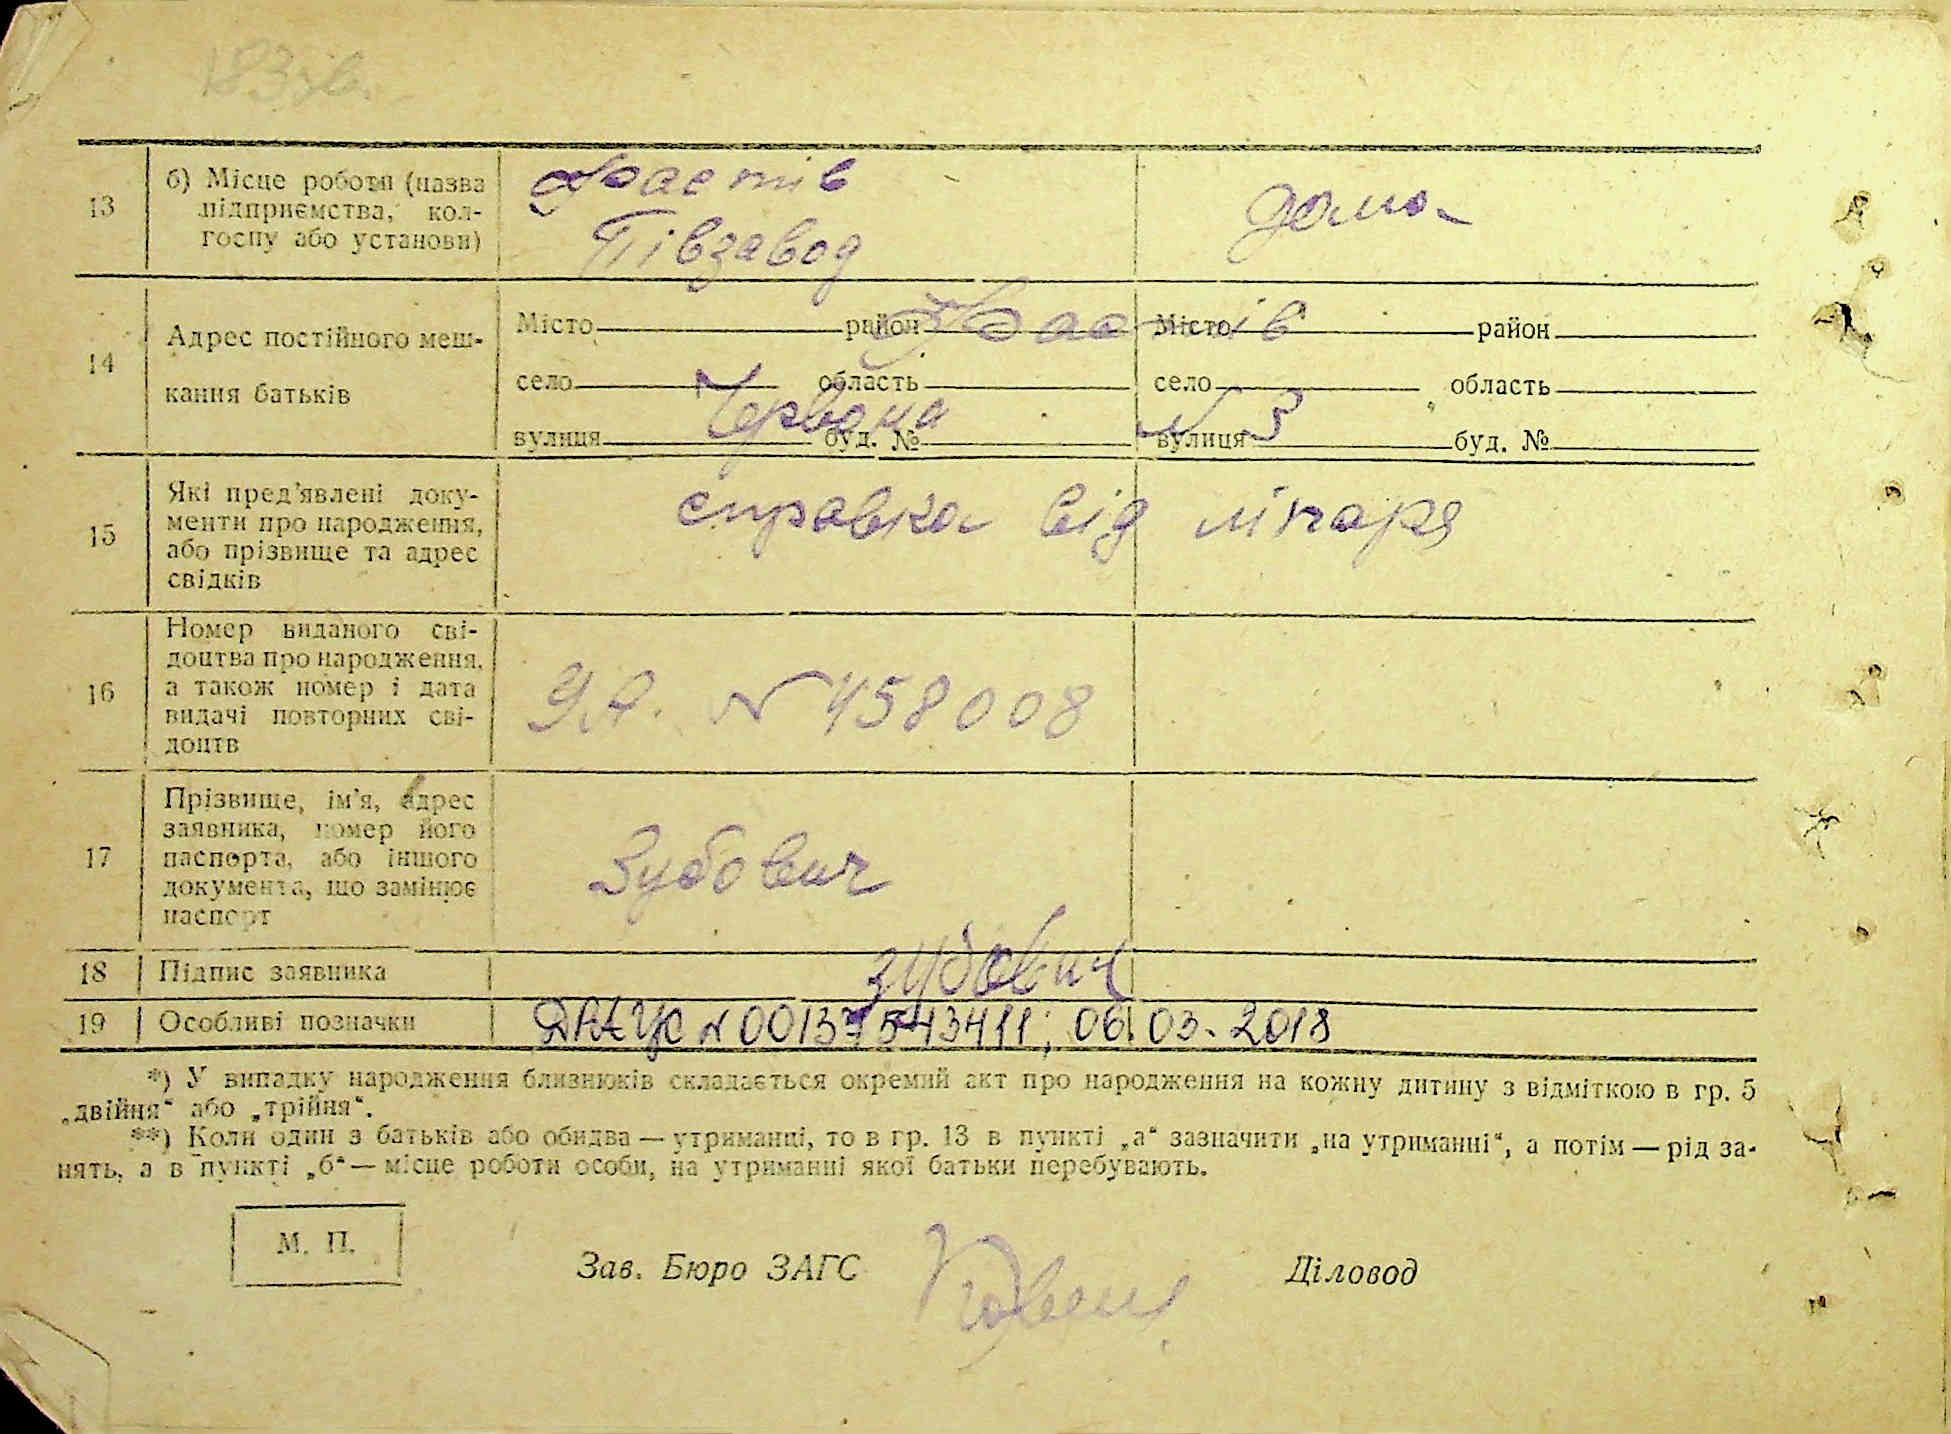 13
б) Місце роботи (назва
підприємства, кол-
госпу або установи)
Фастів
Півзавод
дома
14
Адрес постійного меш-
кання батьків
Місто район Фастів Місто район
село область село область
вулиця Червона буд. № вулиця N 3 буд. №
15
Які пред'явлені доку-
менти про народження,
або прізвище та адрес
свідків
справка від лікаря
16
Номер виданого сві-
доцтва про народження,
а також номер і дата
видачі повторних сві-
доцтв
УА. N 458008
17
Прізвище, ім'я, адрес
заявника, номер його
паспорта, або іншого
документа, що замінює
паспорт
Зубович
18 Підпис заявника Зубович
19 Особливі позначки ДРАЦС N 00137543411; 06.03.2018
*) У випадку народження близнюків складається окремий акт про народження на кожну дитину з відміткою в гр. 5
„двійня“ або „трійня“.
**) Коли один з батьків або обидва — утриманці, то в гр. 13 в пункті „а“ зазначити „на утриманні“, а потім — рід за-
нять, а в пункті „б“ — місце роботи особи, на утриманні якої батьки перебувають.
М. П.
Зав. Бюро ЗАГС
Діловод